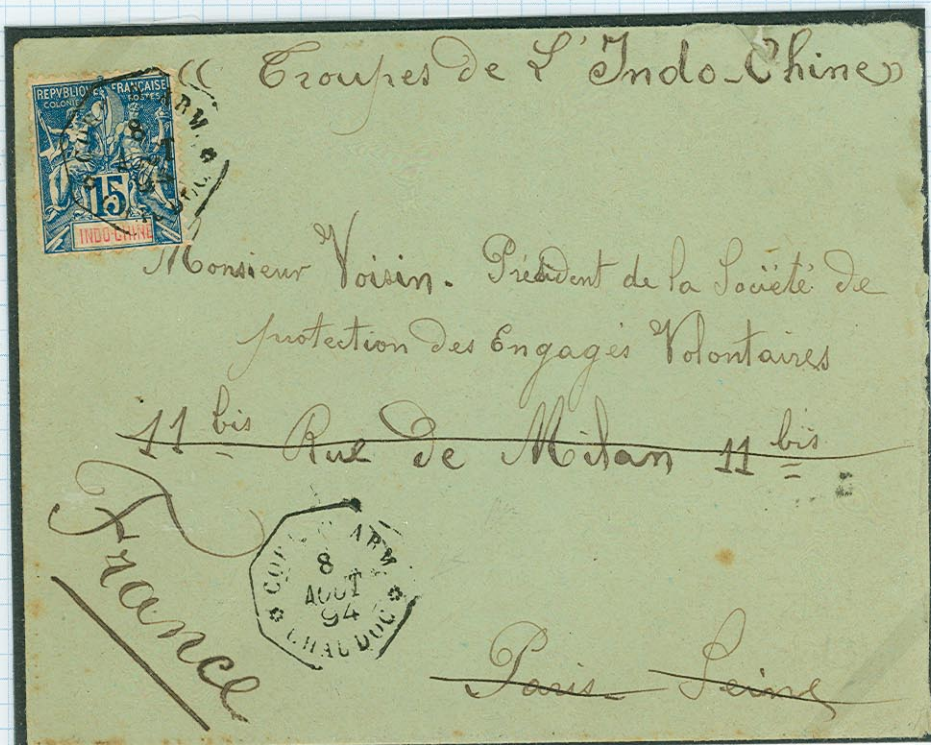 « Troupes de L'Indo-Chine »
REPUBLIQUE FRANÇAISE
COLONIES POSTES
ARM.
8
15
INDO-CHINE
Monsieur Voisin. Président de la Société de
protection des Engagés Volontaires
11 bis Rue de Milan 11 bis
France
ARM.
8
AOUT
94
CHAUDOC
Paris Seine